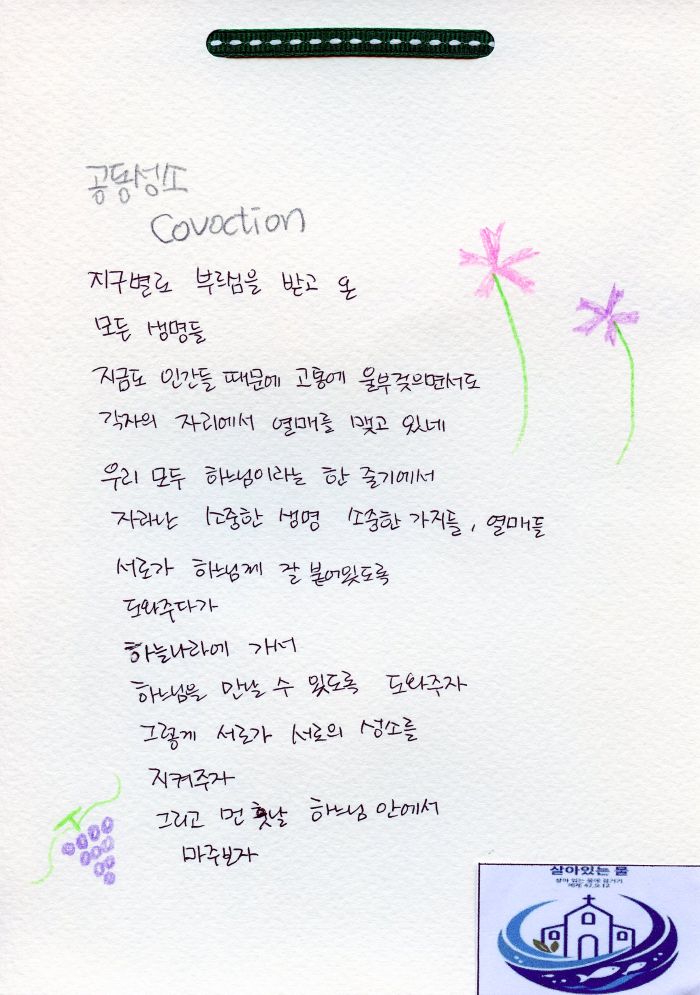 공동성소
Covoction
지구별로 부르심을 받고 온
모든 생명들
지금도 인간들 때문에 고통에 울부짖으면서도
각자의 자리에서 열매를 맺고 있네
우리 모두 하느님이라는 한 줄기에서
자라난 소중한 생명 소중한 가지들, 열매들
서로가 하느님께 잘 붙어있도록
도와주다가
하늘나라에 가서
하느님을 만날 수 있도록 도와주자
그렇게 서로가 서로의 성소를
지켜주자
그리고 먼 훗날 하느님 안에서
마주보자
살아있는 물